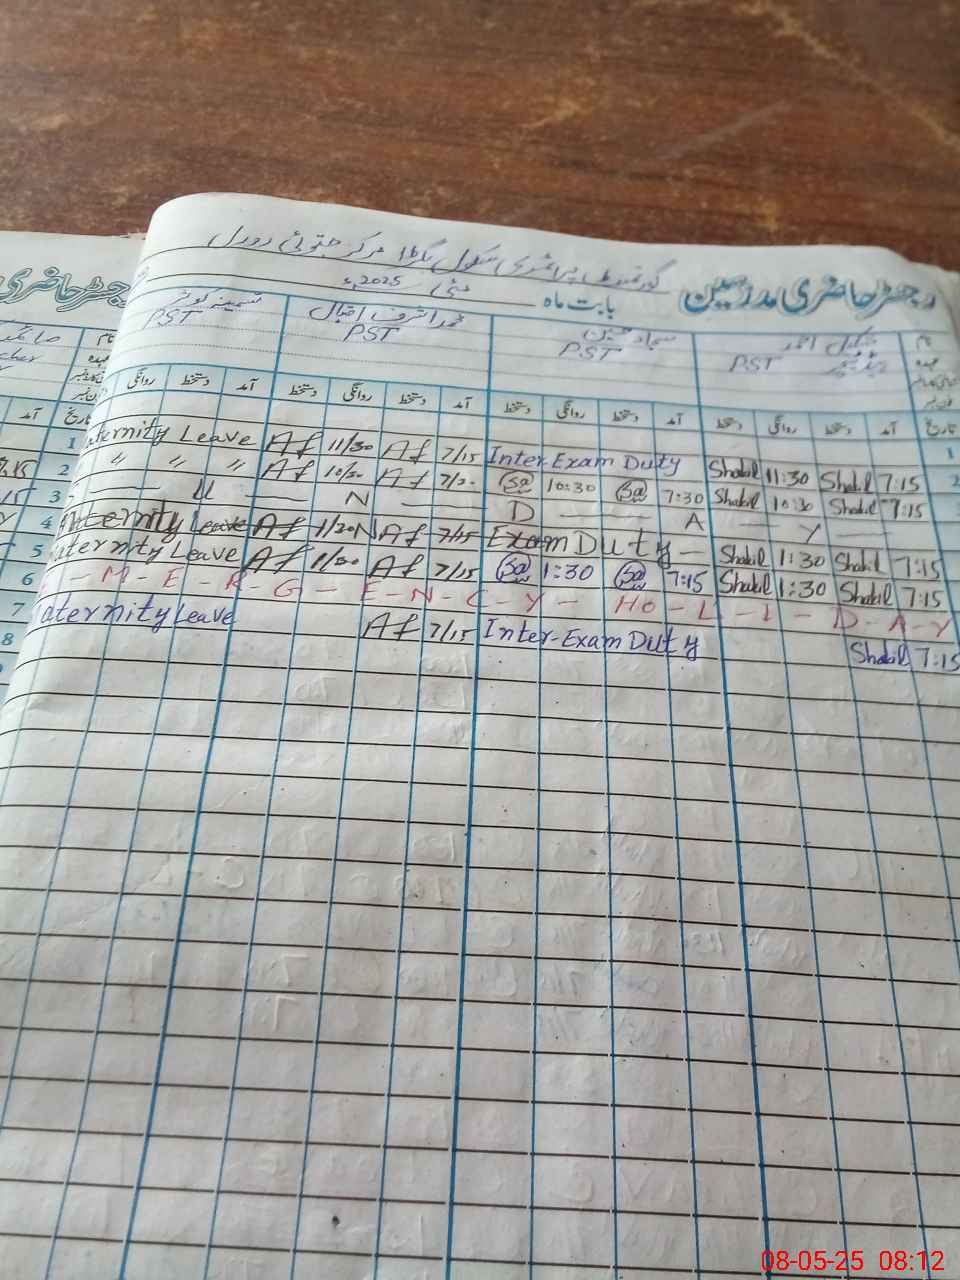 گورنمنٹ پرائمری سکول بگڑا مرکز جتوئی رورل
رجسٹر حاضری مدرسین بابت ماہ مئی 2025ء
رجسٹر حاضری
نام شکیل احمد سجاد حسین محمد اشرف اقبال تسمینہ کوثر
عہدہ ہیڈ ٹیچر PST PST PST PST
تاریخ آمد دستخط روانگی دستخط آمد دستخط روانگی دستخط آمد دستخط روانگی دستخط آمد دستخط روانگی
1 Maternity Leave Af 11/30 Af 7/15 Inter Exam Duty Shakil 11:30 Shakil 7:15 1
2 " " " Af 10/30 Af 7/30 Sa 10:30 Sa 7:30 Shakil 10:30 Shakil 7:15 2
3 - U - N - D - A - Y -
4 Maternity Leave Af 1/30 Af 7/15 Exam Duty - Shakil 1:30 Shakil 7:15
5 Maternity Leave Af 1/30 Af 7/15 Sa 1:30 Sa 7:15 Shakil 1:30 Shakil 7:15
6 - M - E - R - G - E - N - C - Y - Ho - L - I - D - A - Y
7 Maternity Leave Af 7/15 Inter-Exam Duty Shakil 7:15
8
9
08-05-25 08:12